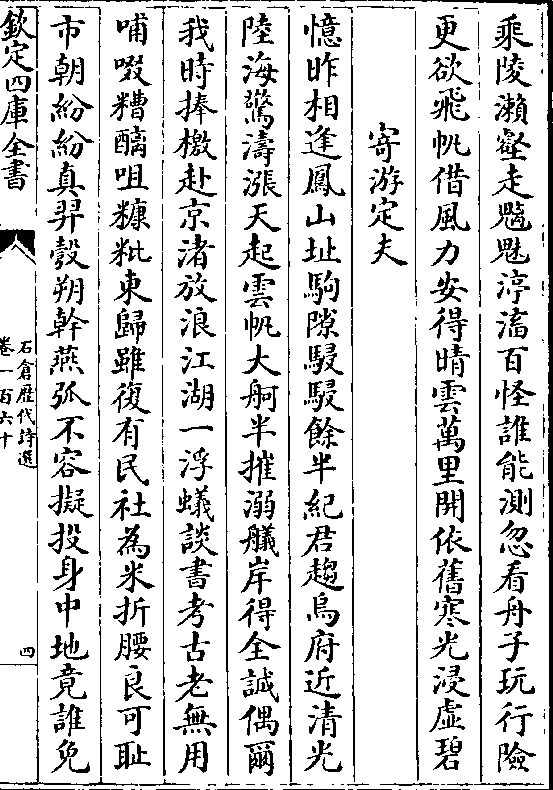 乘陵瀨壑走魑魅渟滀百怪誰能測忽看舟子玩行險
更欲飛帆借風力安得晴雲萬里開依舊寒光浸虛碧
寄游定夫
憶昨相逢鳳山址駒隙駸駸餘半紀君趨烏府近清光
陸海驚濤漲天起雲帆大舸半摧溺艤岸得全誠偶爾
我時捧檄赴京渚放浪江湖一浮蟻談書考古老無用
哺啜糟醨咀糠粃東歸雖復有民社為米折腰良可耻
市朝紛紛真羿彀朔幹燕弧不容擬投身中地竟誰免
欽定四庫全書
石倉歷代詩選
卷一百六十
四